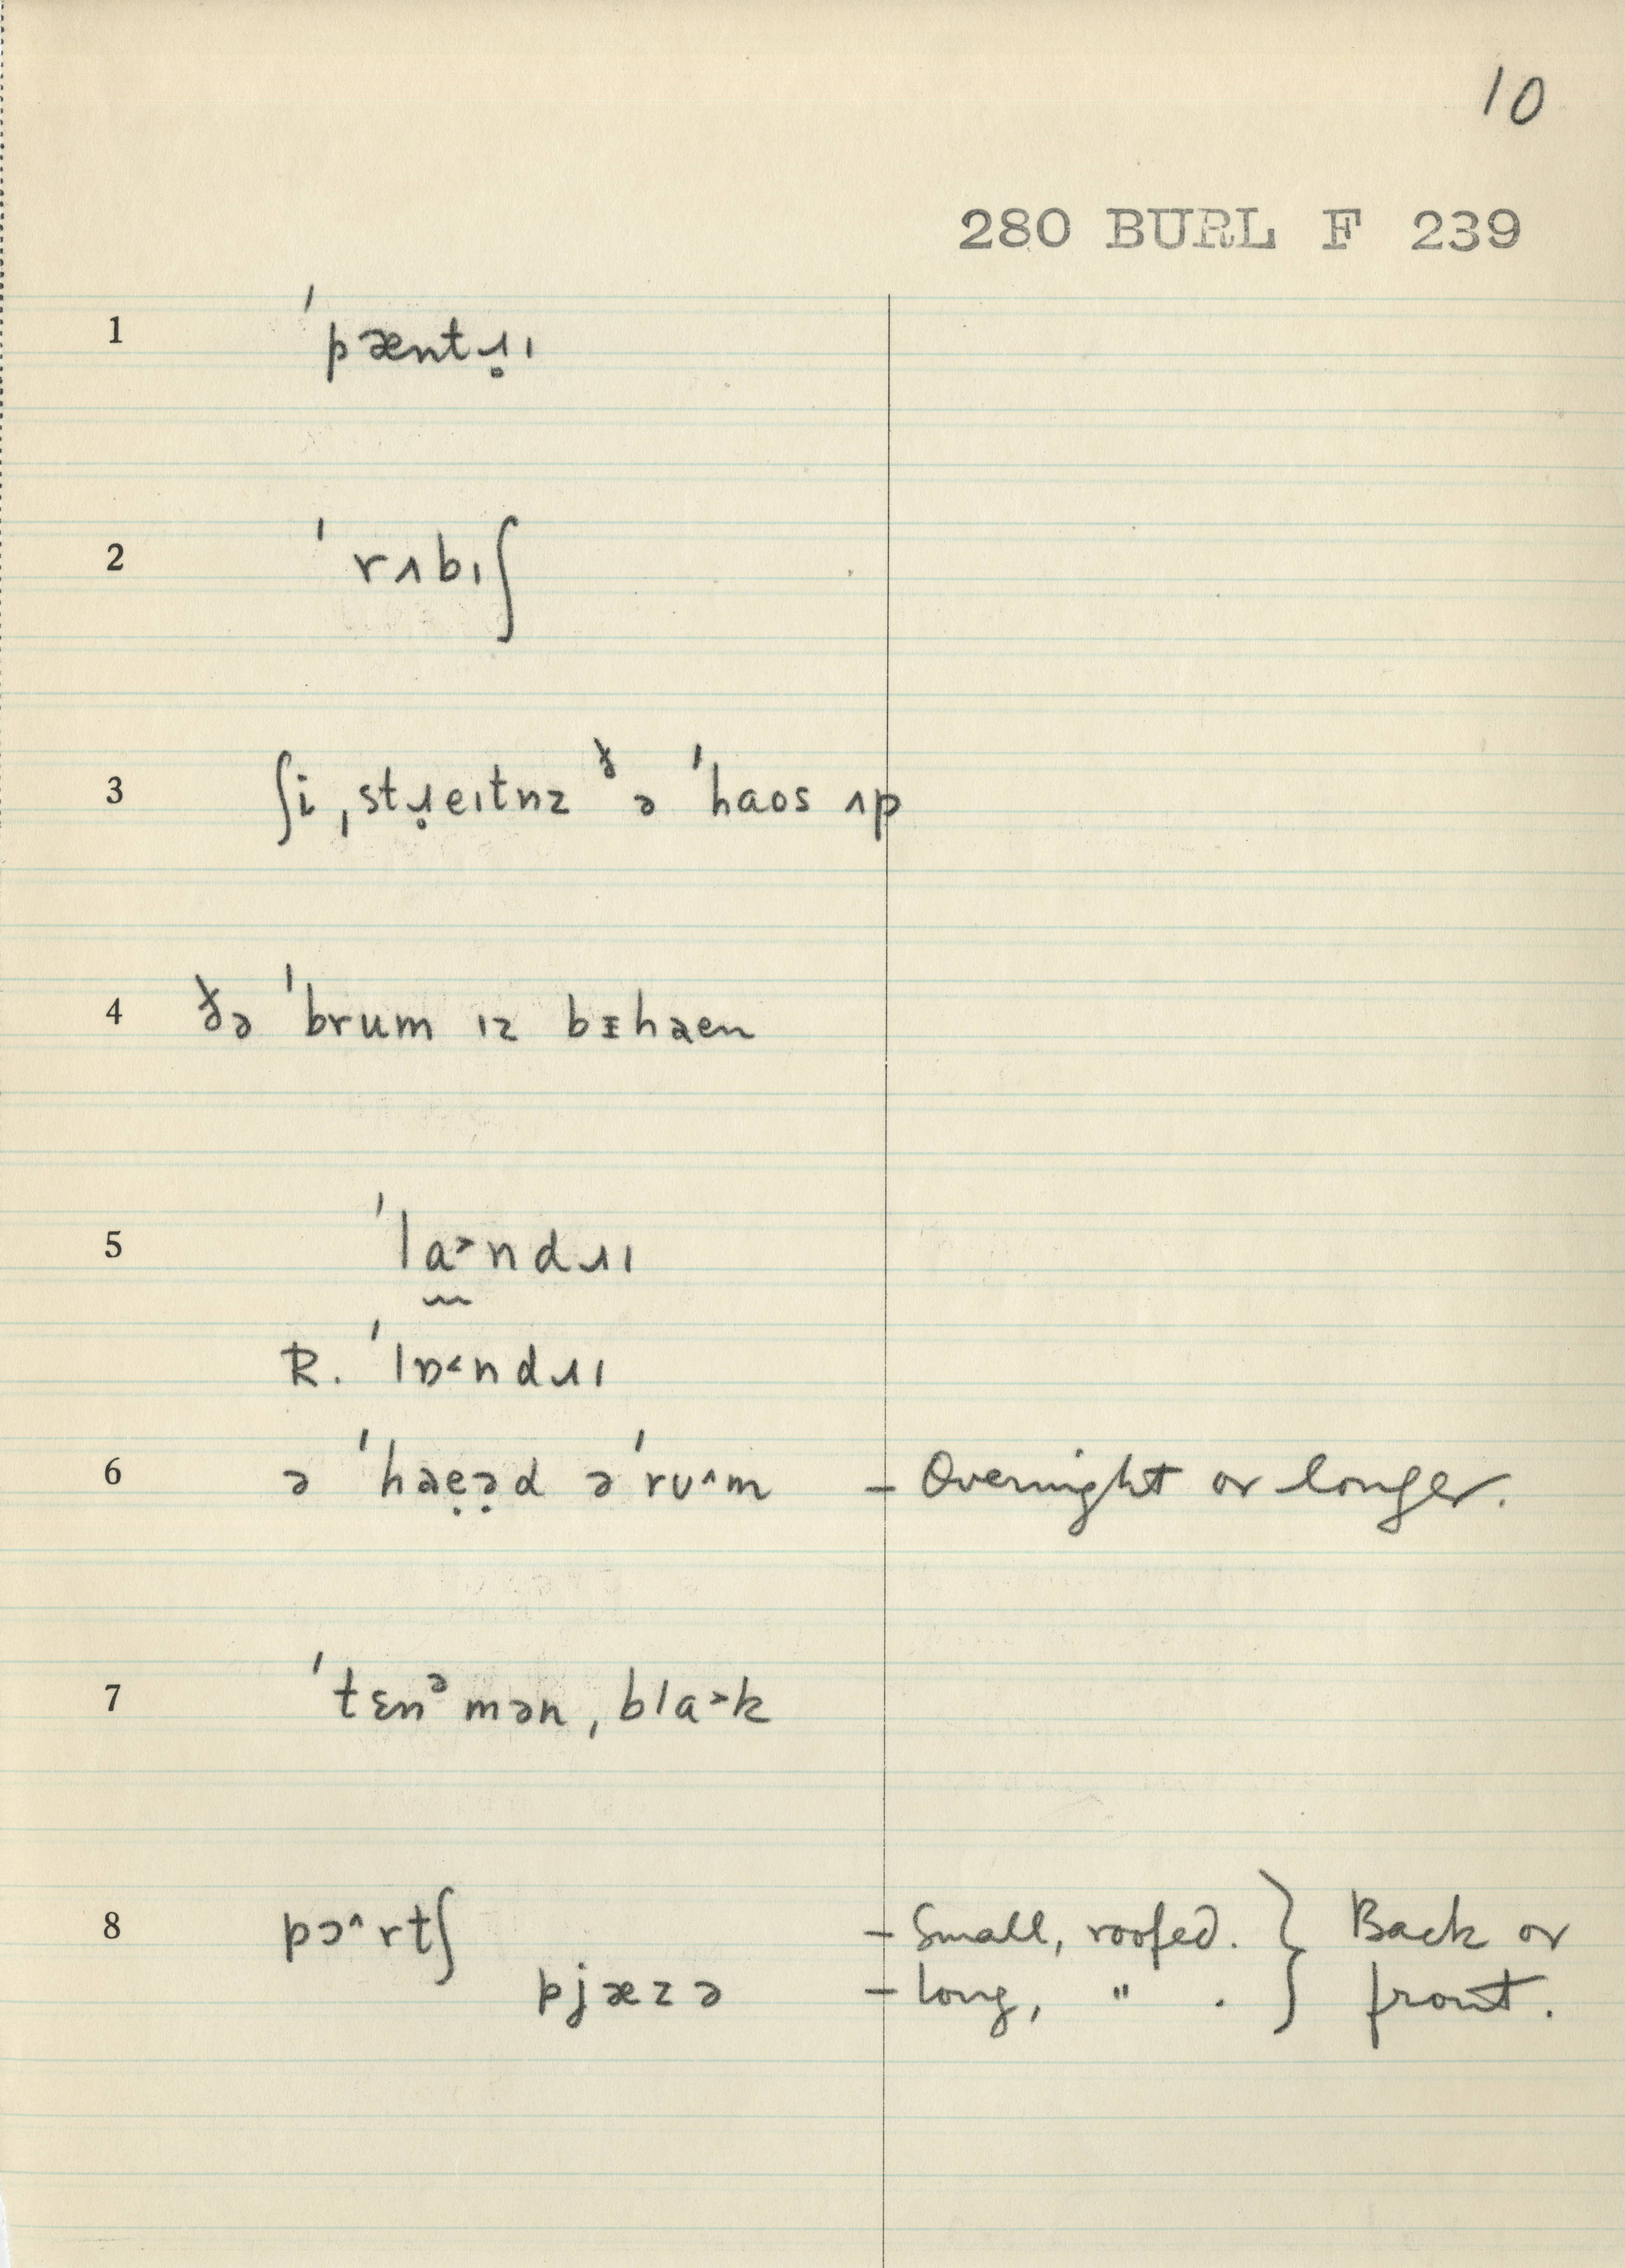 10
280 BURL F 239
1 ˈpæntɹ̥ɪ
2 ˈrʌbɪʃ
3 ʃi ˌstɹ̥eɪtnz ᵟə ˈhaos ʌp
4 ðə ˈbrum ɪz bɪ̵hɐen
5 ˈla˃ndɹɪ
R. ˈlɒ˂ndɹɪ
6 ə ˈhɐẹə̣d əˈrʊ^m – Overnight or longer.
7 ˈtɛnᵊmən ˌbla˃k
8 pɔ^rtʃ – Small, roofed. } Back or
pjæzə – long, " . } front.